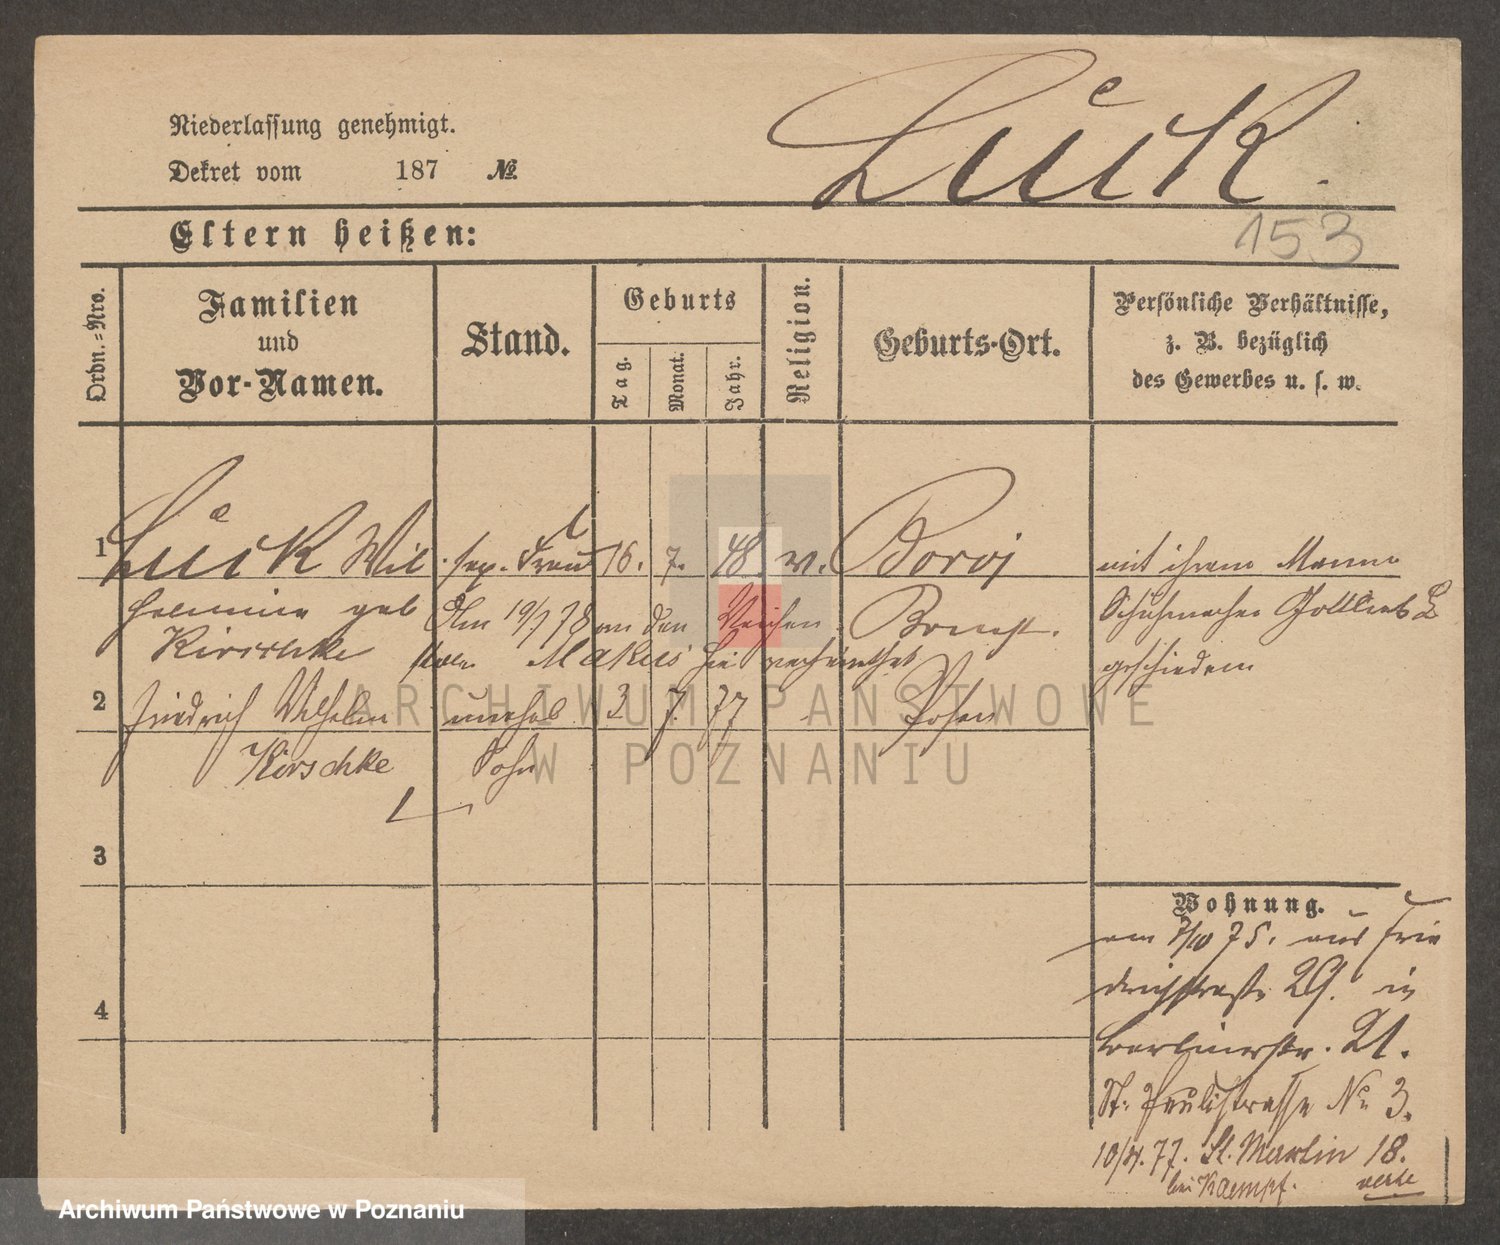 Niederlassung genehmigt.
Dekret vom 187 №
Lück.
153
Eltern heißen:
Ordn.-Nro.
Familien
und
Vor-Namen.
Stand.
Geburts
Tag.
Monat.
Jahr.
Religion.
Geburts-Ort.
Persönliche Verhältnisse,
z. B. bezüglich
des Gewerbes u. s. w.
1 Lück Wil sep. Frau 16. 7. 48. ev. Boroj mit ihrem Manne
helmine geb Am 19/7 78 an den Bomst. Schuhmacher Gottlieb L
Kirschke Makus hie verheirathet geschieden
2 Friedrich Wilhelm unehel 3 7. 77 Posen
Kirschke Sohn
3
4
Wohnung.
am 7/10 75. aus Frie
drichstraße 29. in
Berlinerstr. 21.
St. Paulistrasse No 3.
10/4. 77. St. Martin 18.
bei Kaempf. verte
ARCHIWUM PAŃSTWOWE
W POZNANIU
Archiwum Państwowe w Poznaniu